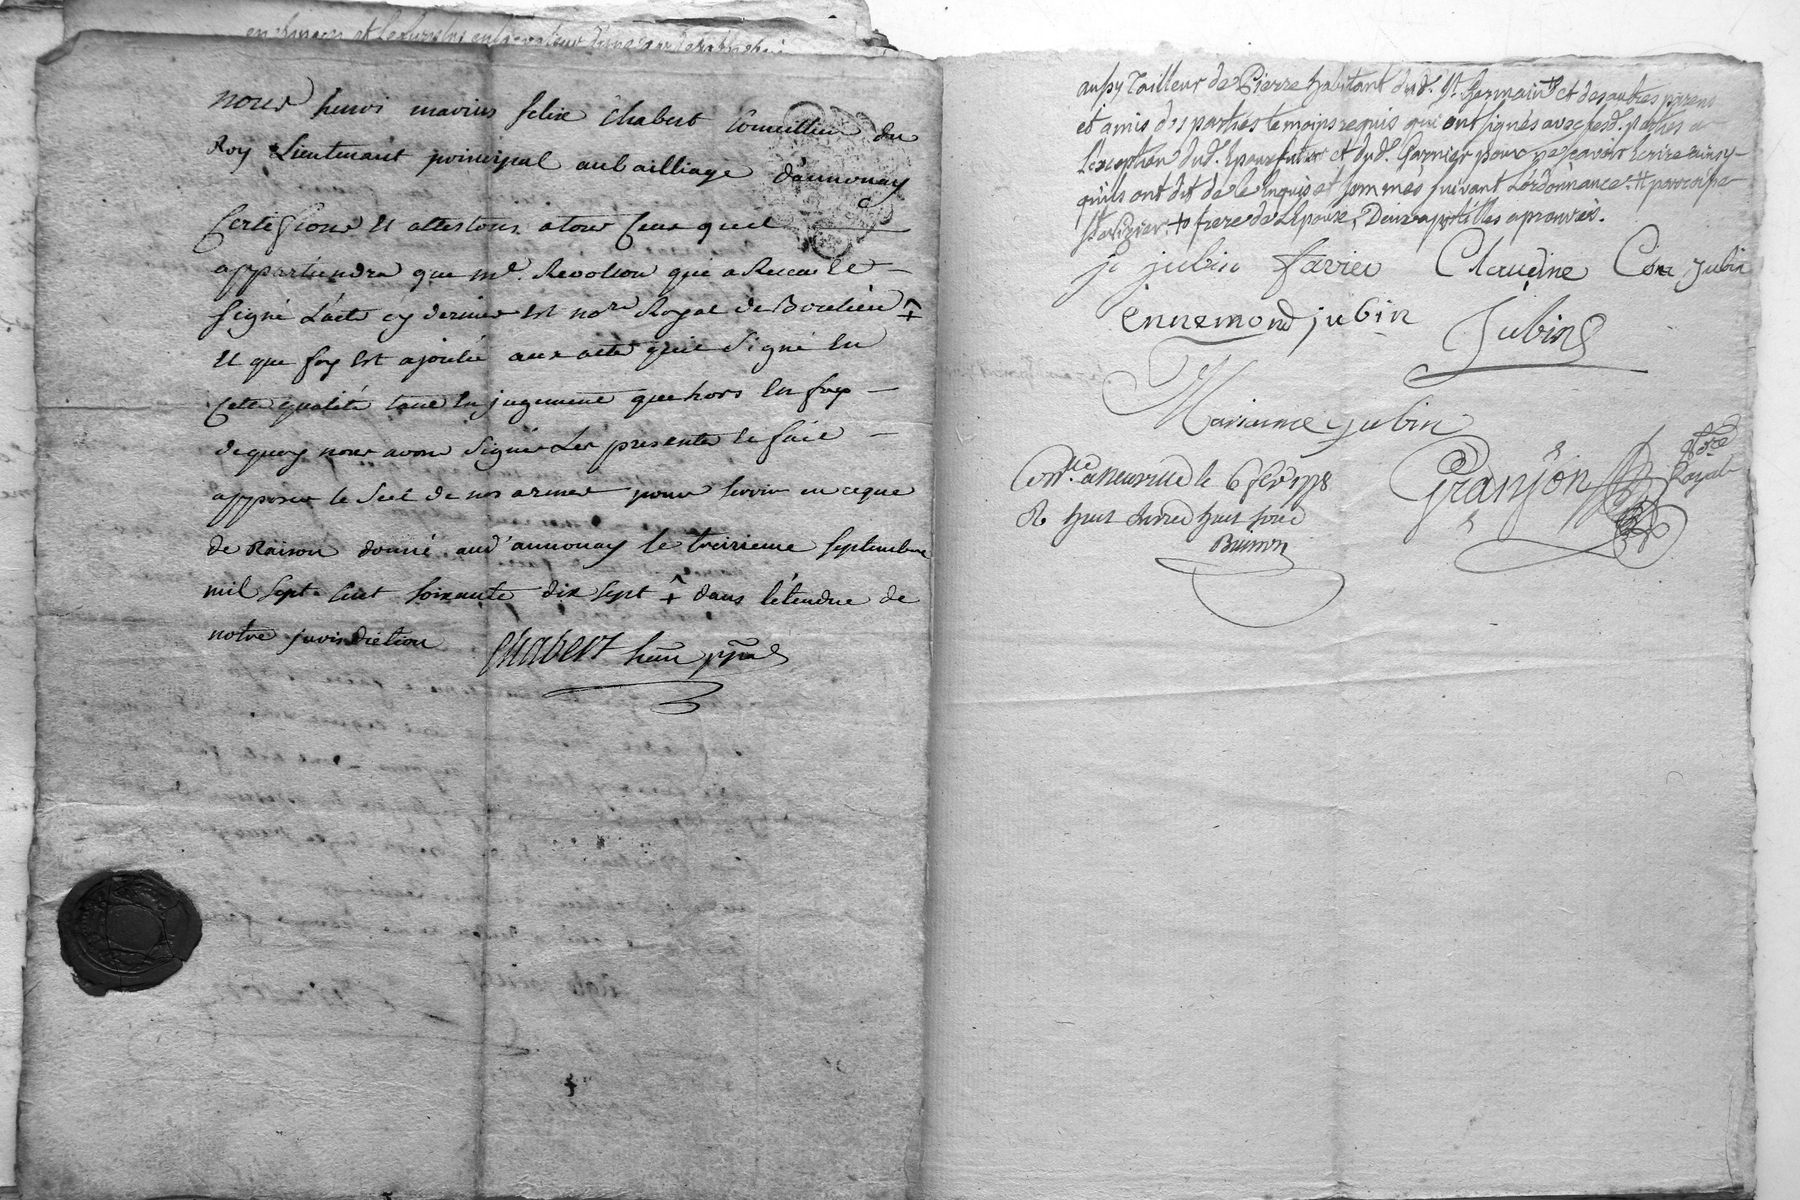 nous henri marius felix Chabert Conseillier du
Roy Lieutenant principal au bailliage d'annonay
Certifions et attestons a tous Ceux quil
appartiendra que me. Revolson qui a Recu et
signé L'acte cy dernier est nore Royal de Boulieu
et que foy est ajoutée aux actes quil signe en
Cete qualité tant en jugement que hors en foy
de quoy nous avons signé Les presentes et fait
apposer le scel de nos armes pour servir en ce que
de Raison donné aud' annonay le treizieme septembre
mil sept cent soixante dix sept dans l'étendue de
notre jurisdiction Chabert lieu ppal
tailleur de Pierre habitant dud. St. Germain et des autres parens
et amis des parties temoins requis qui ont signés avec lesd. parties a
Lexception dud. Epoux futur et dud. Garnier pour ne scavoir Ecrire ainsy
quils ont dit de ce Enquis et sommés suivant L'ordonnance
frere de L'epouse, Deux apostilles aprouvés.
jubin favier Claudine jubin
Ennemond jubin Jubin
Marianne jubin
Conlle a le 6 fevr 1778
R huit Livres huit sous
Granjon Nore Royal